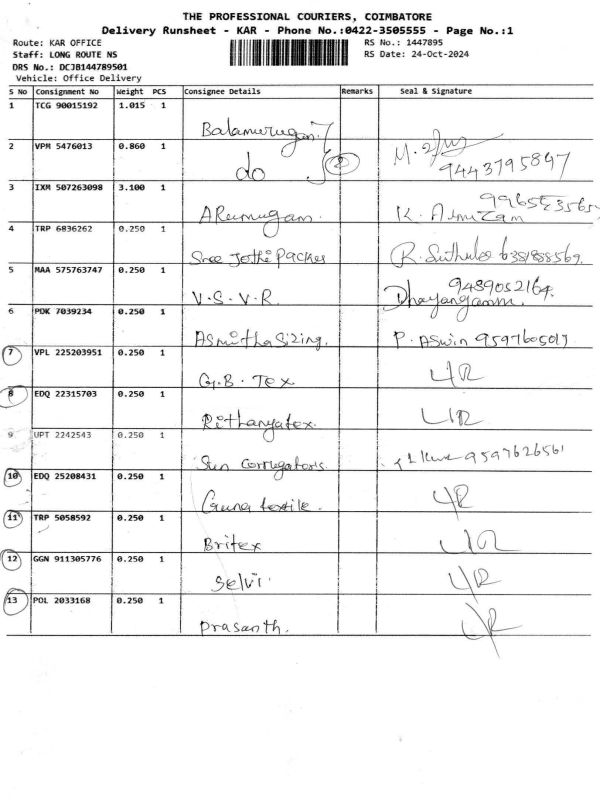 THE PROFESSIONAL COURIERS, COIMBATORE
Delivery Runsheet - KAR - Phone No.:0422-3505555 - Page No.:1
Route: KAR OFFICE RS No.: 1447895
Staff: LONG ROUTE NS RS Date: 24-Oct-2024
DRS No.: DCJB144789501
Vehicle: Office Delivery
S No Consignment No Weight PCS Consignee Details Remarks Seal & Signature
1 TCG 90015192 1.015 1 Balamurugan
2 VPM 5476013 0.860 1 do 2 9443795847
3 IXM 507263098 3.100 1 ARumugam. K.
4 TRP 6836262 0.250 1 Sree Jothi Packes R. 6381888569.
5 MAA 575763747 0.250 1 V.S.V.R. 9489052164.
6 PDK 7039234 0.250 1 Asmitha Sizing. P. Aswin 9597605017
7 VPL 225203951 0.250 1 G.B. Tex UR
8 EDQ 22315703 0.250 1 Rithanyatex. UR
9 UPT 2242543 0.250 1 Sun corrugators. 9597626561
10 EDQ 25208431 0.250 1 Guna textile. UR
11 TRP 5058592 0.250 1 Britex UR
12 GGN 911305776 0.250 1 Selvi. UR
13 POL 2033168 0.250 1 Prasanth. UR